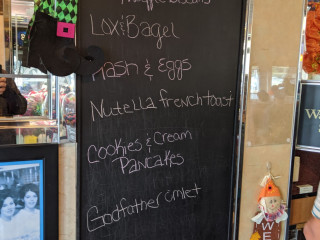 Lox & Bagel
Hash & Eggs
Nutella french toast
Cookies & Cream
Pancakes
Godfather omlet
WE